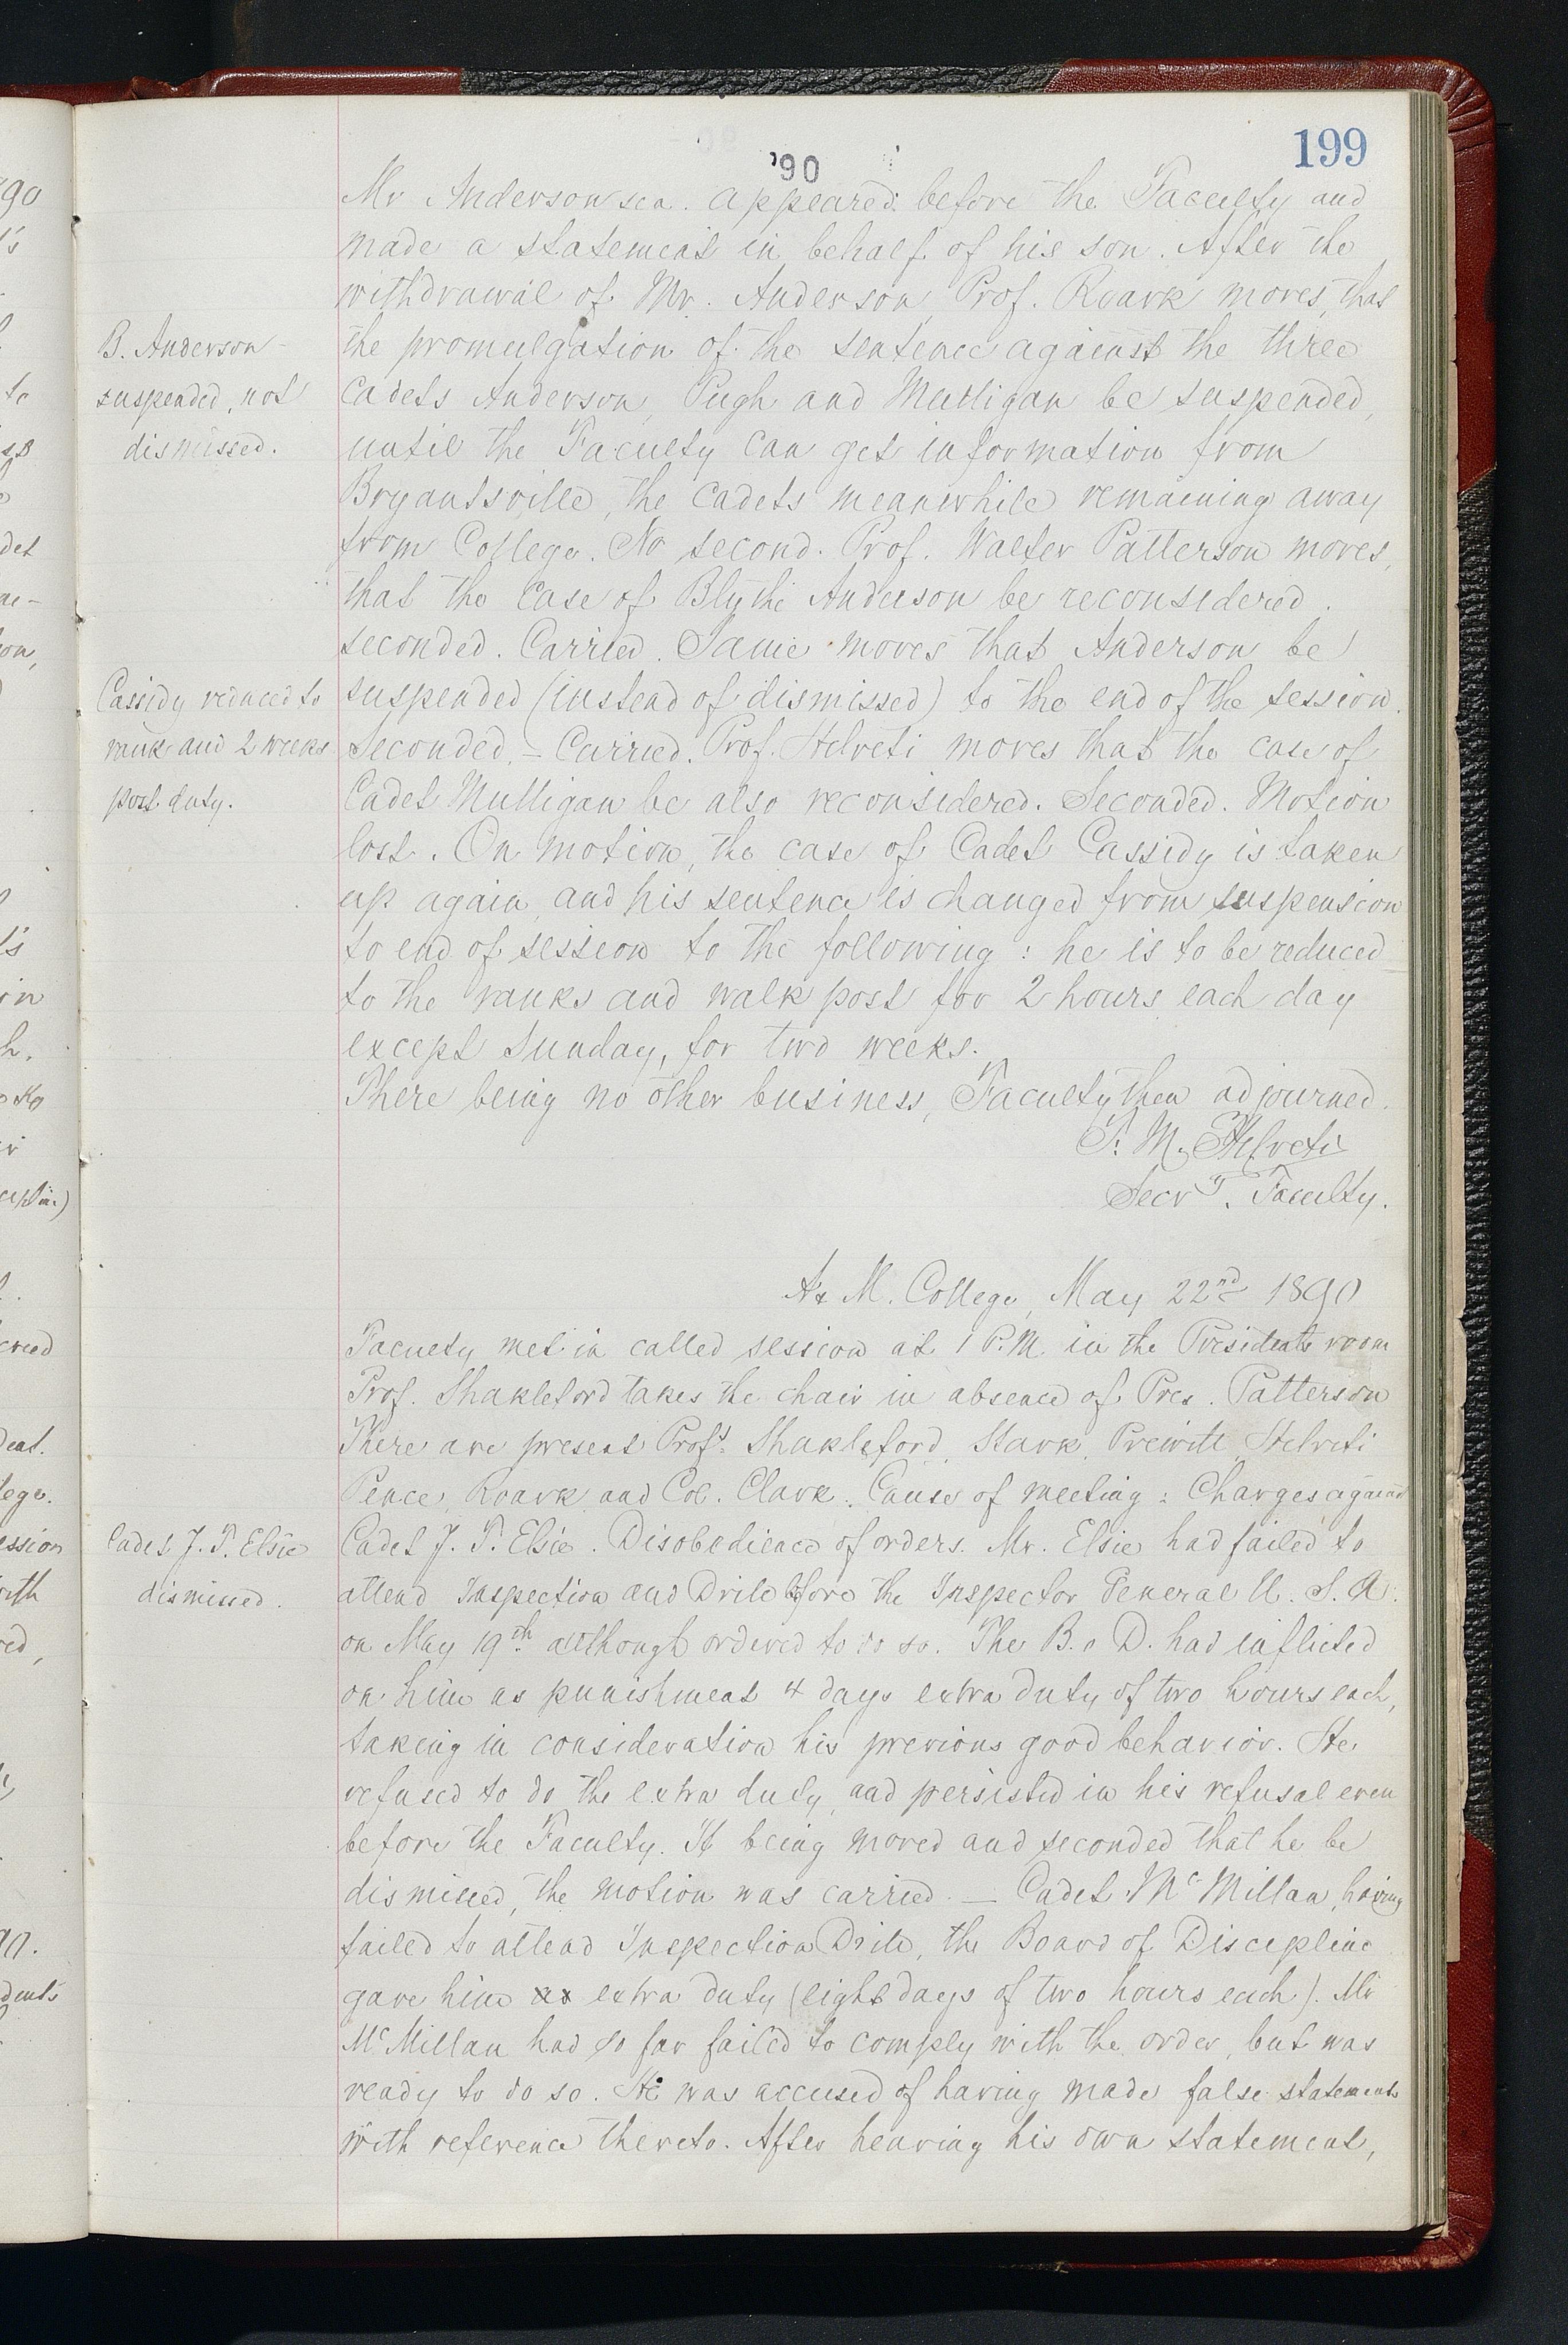 199
'90
Mr Anderson sen. appeared before the Faculty and
made a statement in behalf of his son. After the
withdrawal of Mr. Anderson, Prof. Roark moves, that
the promulgation of the sentence against the three
cadets Anderson, Pugh and Mulligan be suspended,
until the Faculty can get information from
Bryantsville, the cadets meanwhile remaining away
from College. No second. Prof. Walter Patterson moves,
that the case of Blythe Anderson be reconsidered.
seconded. Carried. Same moves that Anderson be
suspended (instead of dismissed) to the end of the session.
Seconded, – Carried. Prof. Helveti moves that the case of
Cadet Mulligan be also reconsidered. Seconded. Motion
lost. On motion, the case of Cadet Cassidy is taken
up again and his sentence is changed from suspension
to end of session to the following: he is to be reduced
to the ranks and walk post for 2 hours each day
except Sunday, for two weeks.
There being no other business, Faculty then adjourned.
P. M. Helveti
Secr T. Faculty.
B. Anderson –
suspended, not
dismissed.
Cassidy reduced to
rank and 2 weeks
post duty.
A & M. College, May 22nd 1890
Faculty met in called session at 1 P.M. in the Presidents room
Prof. Shakleford takes the chair in absence of Pres. Patterson
There are present Profs. Shakleford, Stark, Prewitt, Helveti
Pence, Roark and Col. Clark. Cause of meeting: Charges against
Cadet J. T. Elsie. Disobedience of orders. Mr. Elsie had failed to
attend Inspection and Drill before the Inspector General U. S. A.
on May 19th although ordered to do so. The B. o D. had inflicted
on him as punishment 4 days extra duty of two hours each,
taking in consideration his previous good behavior. He
refused to do the extra duty, and persisted in his refusal even
before the Faculty. It being moved and seconded that he be
dismissed, the motion was carried. — Cadet McMillan, having
failed to attend Inspection Drill, the Board of Discipline
gave him extra duty (eight days of two hours each). Mr
McMillan had so far failed to comply with the order, but was
ready to do so. He was accused of having made false statements
with reference thereto. After hearing his own statement,
Cadet J. T. Elsie
dismissed.